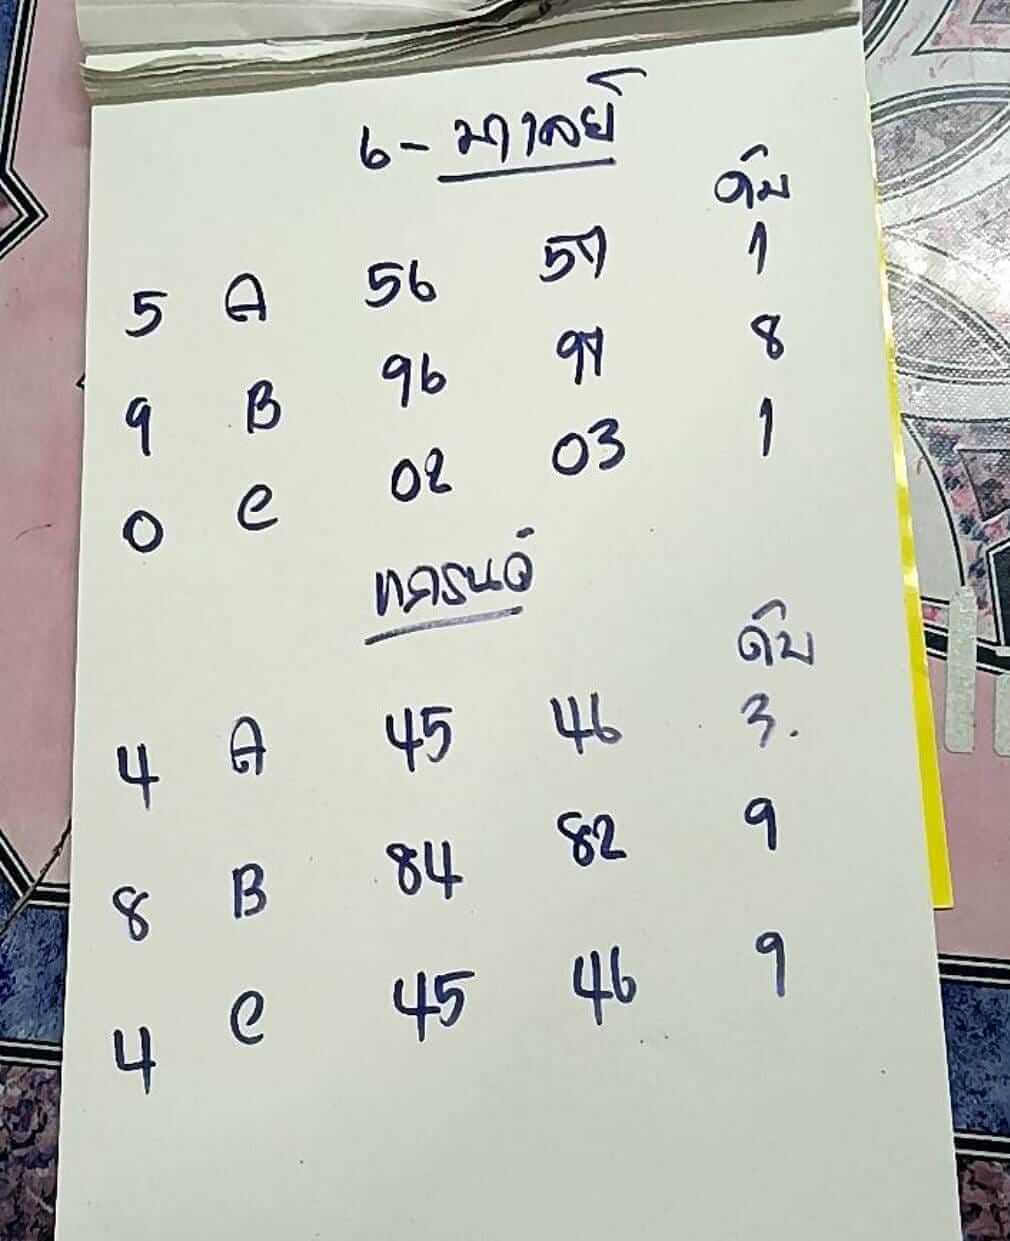 6-มาลย์
ดับ
5 A 56 57 1
9 B 96 97 8
0 C 02 03 1
ดับ
4 A 45 46 3.
8 B 84 82 9
4 C 45 46 9